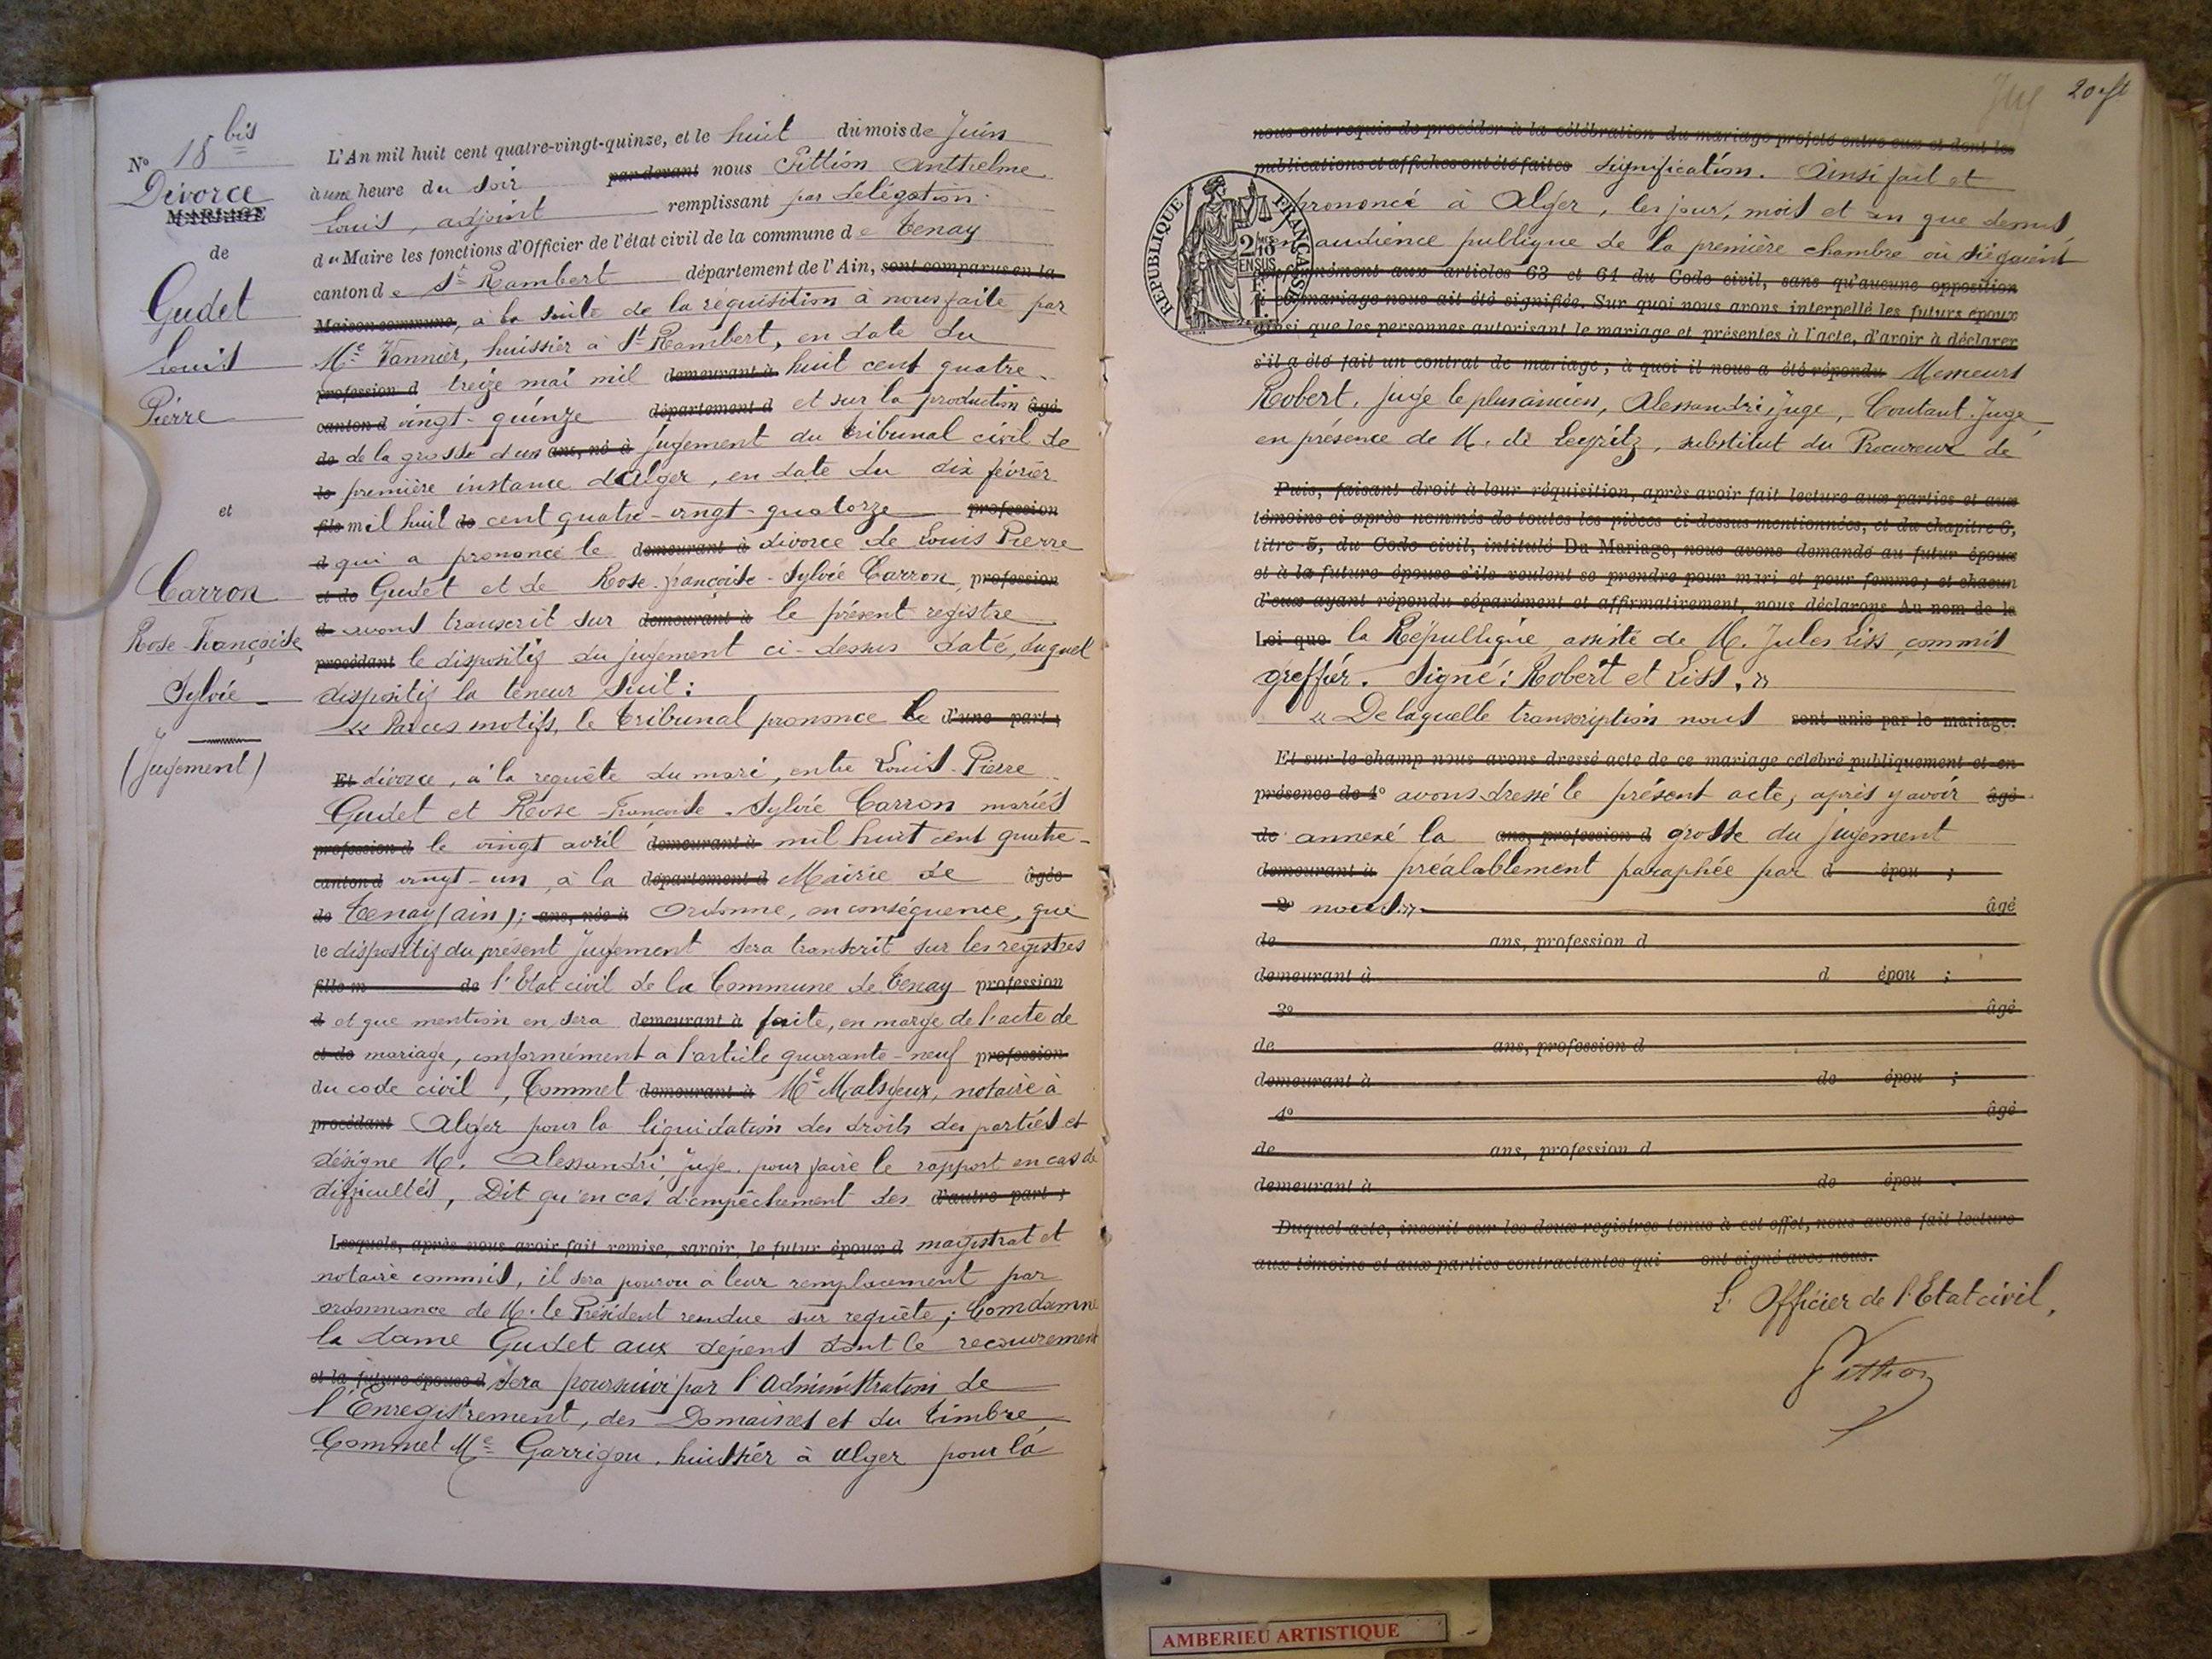 N° 18 bis
Divorce
MARIAGE
de
Gudet
Louis
Pierre
et
Carron
Rose-Françoise
Sylvie
(Jugement)
L'An mil huit cent quatre-vingt-quinze, et le huit du mois de Juin
à une heure du soir par devant nous Pittion Anthelme
Louis, adjoint remplissant par délégation
du Maire les fonctions d'Officier de l'état civil de la commune de Tenay
canton de St Rambert département de l'Ain, sont comparus en la
Maison commune, à la suite de la réquisition à nous faite par
Me Vannier, huissier à St Rambert, en date du
profession d treize mai mil demeurant à huit cent quatre-
canton d vingt-quinze département d et sur la production âgé
de de la grosse d'un ans, né à jugement du tribunal civil de
le première instance d'Alger, en date du dix février
fils mil huit de cent quatre-vingt-quatorze profession
d qui a prononcé le demeurant à divorce de Louis Pierre
et de Gudet et de Rose-françoise-Sylvie Carron, profession
d avons transcrit sur demeurant à le présent registre
procédant le dispositif du jugement ci-dessus daté, duquel
dispositif la teneur suit:
« Par ces motifs, le tribunal prononce le d'une part;
Et divorce, à la requête du mari, entre Louis-Pierre
Gudet et Rose-Françoise-Sylvie Carron mariés
profession d le vingt avril demeurant à mil huit cent quatre-
canton d vingt-un, à la département d Mairie de âgée
de Tenay (ain); ans, née à Ordonne, en conséquence, que
le dispositif du présent jugement sera transcrit sur les registres
fille m de l'Etat civil de la Commune de Tenay profession
d et que mention en sera demeurant à faite, en marge de l'acte de
et de mariage, conformément à l'article quarante-neuf profession
du code civil, Commet demeurant à Me Malsyeux, notaire à
procédant Alger pour la liquidation des droits des parties et
désigne M. Alessandri, Juge, pour faire le rapport en cas de
difficultés, Dit qu'en cas d'empêchement des d'autre part;
Lesquels, après nous avoir fait remise, savoir, le futur époux d magistrat et
notaire commis, il sera pourvu à leur remplacement par
ordonnance de M. le Président rendue sur requête; Comdamne
la dame Gudet aux dépens dont le recouvrement
et la future épouse d sera poursuivi par l'Administration de
l'Enregistrement, des Domaines et du timbre
Commet Me Garrigou, huissier à Alger pour la
20 ft
nous ont requis de procéder à la célébration du mariage projeté entre eux et dont les
publications et affiches ont été faites signification. Ainsi fait et
prononcé à Alger, les jour, mois et an que dessus,
en audience publique de la première chambre où siégaient
conformément aux articles 63 et 64 du Code civil, sans qu'aucune opposition
mariage nous ait été signifiée. Sur quoi nous avons interpellé les futurs époux
ainsi que les personnes autorisant le mariage et présentes à l'acte, d'avoir à déclarer
s'il a été fait un contrat de mariage; à quoi il nous a été répondu Messieurs
Robert, juge le plus ancien, Alessandri, Juge, Coutant Juge,
en présence de M. de Leyritz, substitut du Procureur de
Puis, faisant droit à leur réquisition, après avoir fait lecture aux parties et aux
témoins ci-après nommés de toutes les pièces ci-dessus mentionnées, et du chapitre 6,
titre 5, du Code civil, intitulé Du Mariage, nous avons demandé au futur époux
et à la future épouse s'ils veulent se prendre pour mari et pour femme; et chacun
d'eux ayant répondu séparément et affirmativement, nous déclarons Au nom de la
Loi que la République, assisté de M. Jules Liss, commis
greffier. Signé: Robert et Liss. »
« De laquelle transcription nous sont unis par le mariage.
Et sur-le-champ nous avons dressé acte de ce mariage célébré publiquement et en
présence de 1° avons dressé le présent acte, après y avoir âgé
de annexé la ans, profession d grosse du jugement
demeurant à préalablement paraphée par d épou ;
2° nous.» âgé
de ans, profession d
demeurant à d épou ;
3° âgé
de ans, profession d
demeurant à de épou ;
4° âgé
de ans, profession d
demeurant à de épou .
Duquel acte, inscrit sur les deux registres tenus à cet effet, nous avons fait lecture
aux témoins et aux parties contractantes qui ont signé avec nous.
L'Officier de l'Etat civil,
Pittion
RÉPUBLIQUE FRANÇAISE
2/10 EN SUS
AMBERIEU ARTISTIQUE